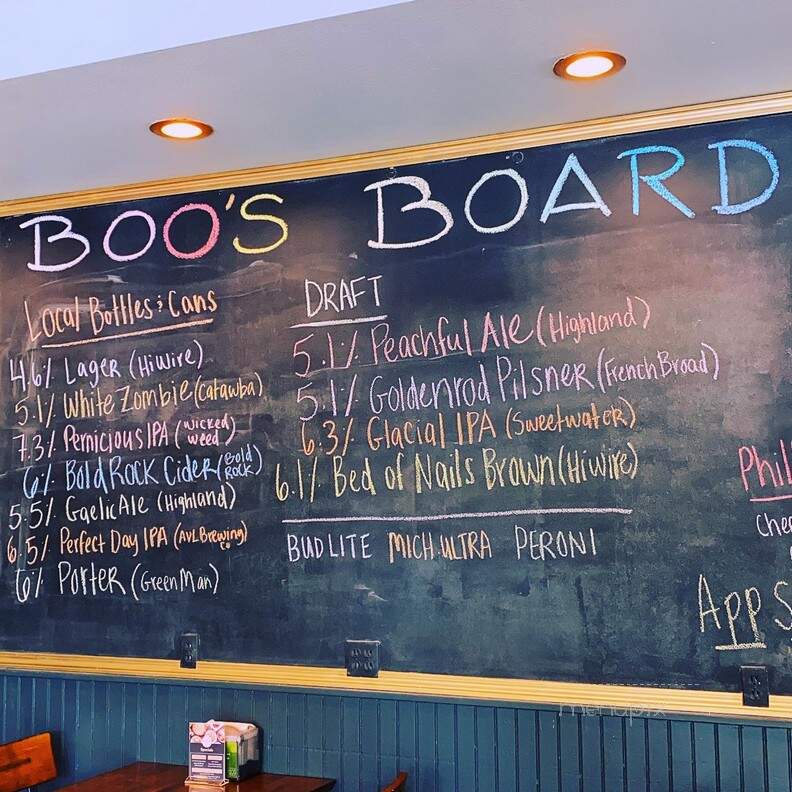 BOO'S BOARD
Local Bottles & Cans
4.6% Lager (Hiwire)
5.1% White Zombie (Catawba)
7.3% Pernicious IPA (Wicked Weed)
6% Bold Rock Cider (Bold Rock)
5.5% Gaelic Ale (Highland)
6.5% Perfect Day IPA (AVL Brewing Co)
6% Porter (Green Man)
DRAFT
5.1% Peachful Ale (Highland)
5.1% Goldenrod Pilsner (French Broad)
6.3% Glacial IPA (Sweetwater)
6.1% Bed of Nails Brown (Hiwire)
BUD LITE MICH. ULTRA PERONI
Phil
Che
App S
Specials
menupix